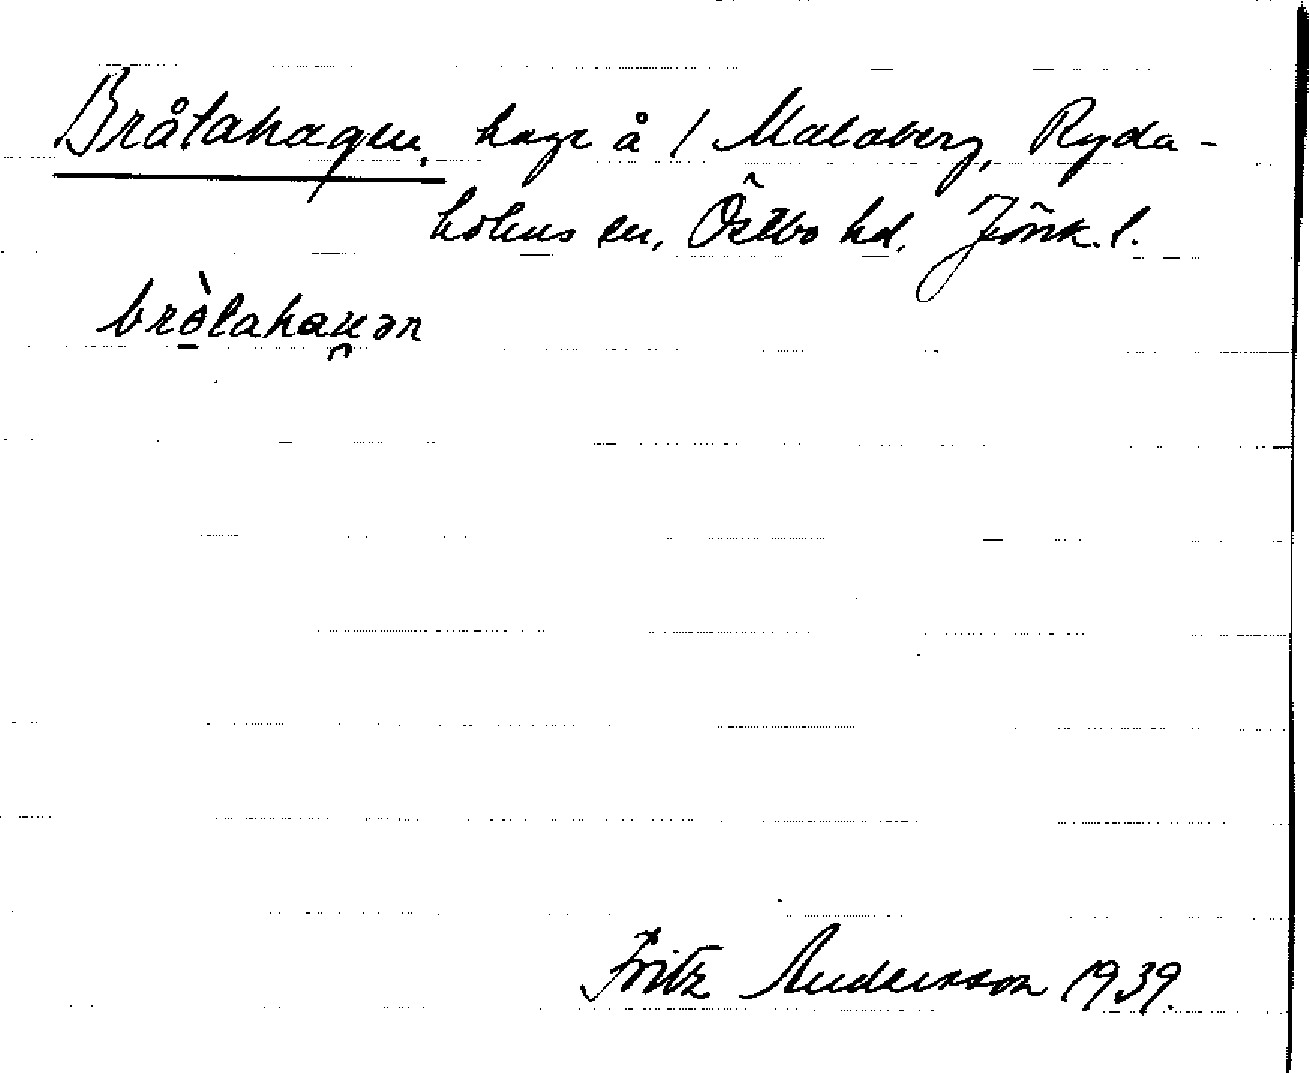 Bråtahagen, hage å 1 Malaberg, Ryda-
holms sn, Östbo hd, Jönk. l.
bròtahaɤən
Fritz Andersson 1939.